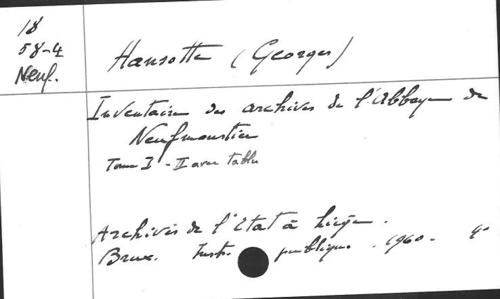 18
58-4
Neuf.
Hansotte (Georges)
Inventaire des archives de l'Abbaye de
Neufmoustier
Tome I - II avec table
Archives de l'Etat à Liège.
Brux. Instr. publique. 1960. 4°